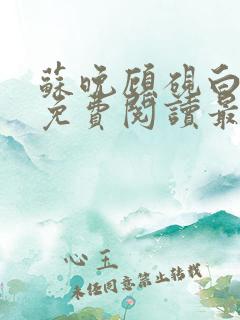 蘇晚顧硯白
免費閱讀最
心玉
未经同意禁止转载